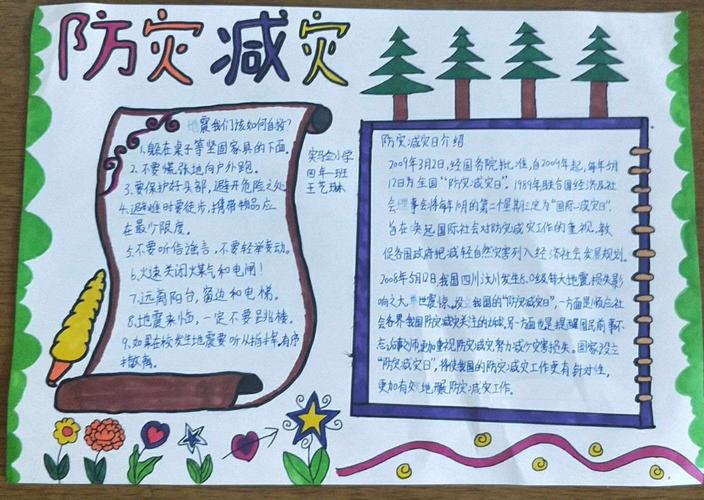 防灾减灾
地震我们该如何自救?
1.躲在桌子等坚固家具的下面。
2.不要慌张地向户外跑。
3.要保护好头部,避开危险之处
4.避难时要徒步,携带物品应
在最少限度。
5.不要听信谣言,不要轻举妄动。
6.火速关闭煤气和电闸!
7.远离阳台,窗边和电梯。
8.地震来临,一定不要
9.如果在校发生地震要听从指挥,有序
撤离。
实马仝小学
四年一班
王艺琳
防灾减灾日介绍
2009年3月2日,经国务院批准,自2009年起,每年5月
12日为全国“防灾减灾日”。1989年联合国经济及社
会理事会将每年10月的第二个星期三定为“国际减灾日”。
旨在唤起国际社会对防灾减灾工作的重视,敦
促各国政府把减轻自然灾害列入经济社会发展规划。
2008年5月12日,我国四川汶川发生8.0级特大地震,损失影
响之大,举世震惊。设立我国的“防灾减灾日”,一方面是顺应社
会各界我国防灾减灾关注的诉求,另一方面也是提醒国民前事不
忘,后事之师,更加重视防灾减灾,努力减少灾害损失。国家设立
“防灾减灾日”,将使我国的防灾减灾工作更有针对性,
更加有效地开展防灾减灾工作。